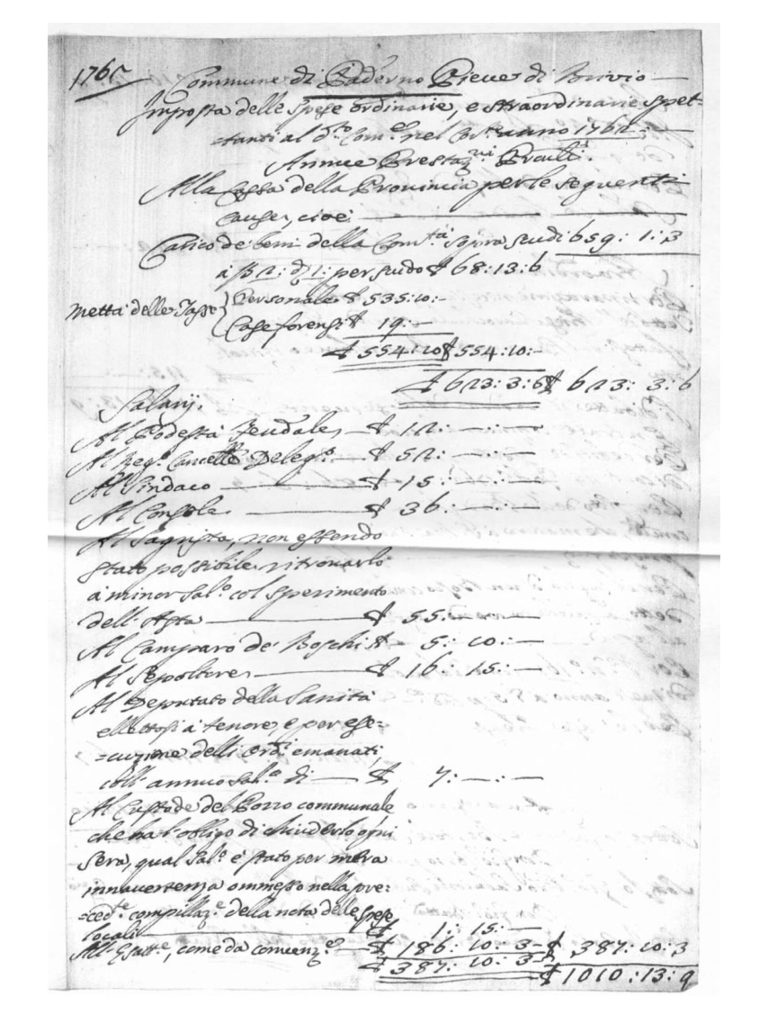 1765
Commune di Paderno Pieve di Brivio
Imposta delle Spese ordinarie, e straordinarie spet-
=tanti al d.to Com.e nel Corr.e anno 1765:
Annue Prestaz.ni
Alla Cassa della Provincia per le seguenti
cause, cioè
Carico de beni della Com.tà sopra scudi 659: 1: 3
per scudo £ 68: 13: 6
Metta delle Tasse { Personale £ 535: 10: —
Case forensi £ 19: —
£ 554: 10 £ 554: 10: —
£ 623: 3: 6 £ 623: 3: 6
Salarij.
Al Podestà Feudale £ 12: — : —
Al Reg.o Cancell.e Deleg.o £ 52: — : —
Al Sindaco £ 15: — : —
Al Console £ 36: — : —
Al Sagrista, non essendo
stato possibile ritrovarlo
a minor Sal.o col sperimento
dell'Asta £ 55: — : —
Al Camparo de' Boschi £ 5: 10: —
Al Sepoltore £ 16: 15: —
Al Deputato della Sanità
ellettosi a tenore, e per ese-
=cuzione delli Ord.i emanati,
coll'annuo Sal.o di £ 7: — : —
Al Custode del Pozzo communale
che ha l'obligo di chiuderlo ogni
sera, qual Sal.o è stato per mera
innavertenza ommesso nella pre-
=ced.te compillaz.e della nota delle spese
locali £ 1: 15: —
All'Esatt.e, come da convenz.e £ 186: 10: 3 — £ 387: 10: 3
£ 387: 10: 3 — £ 1010: 13: 9